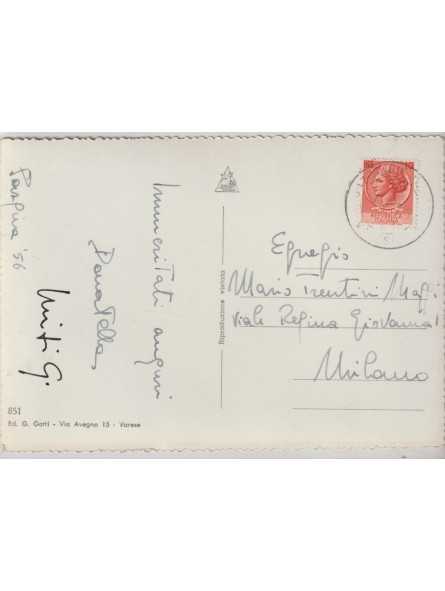 Pasqua '56
Immeritati auguri
Donatella
851
Ed. G. Gatti - Via Avegno 15 - Varese
Riproduzione vietata
Egregio
Mario Trentini
Viale Regina Giovanna
Milano